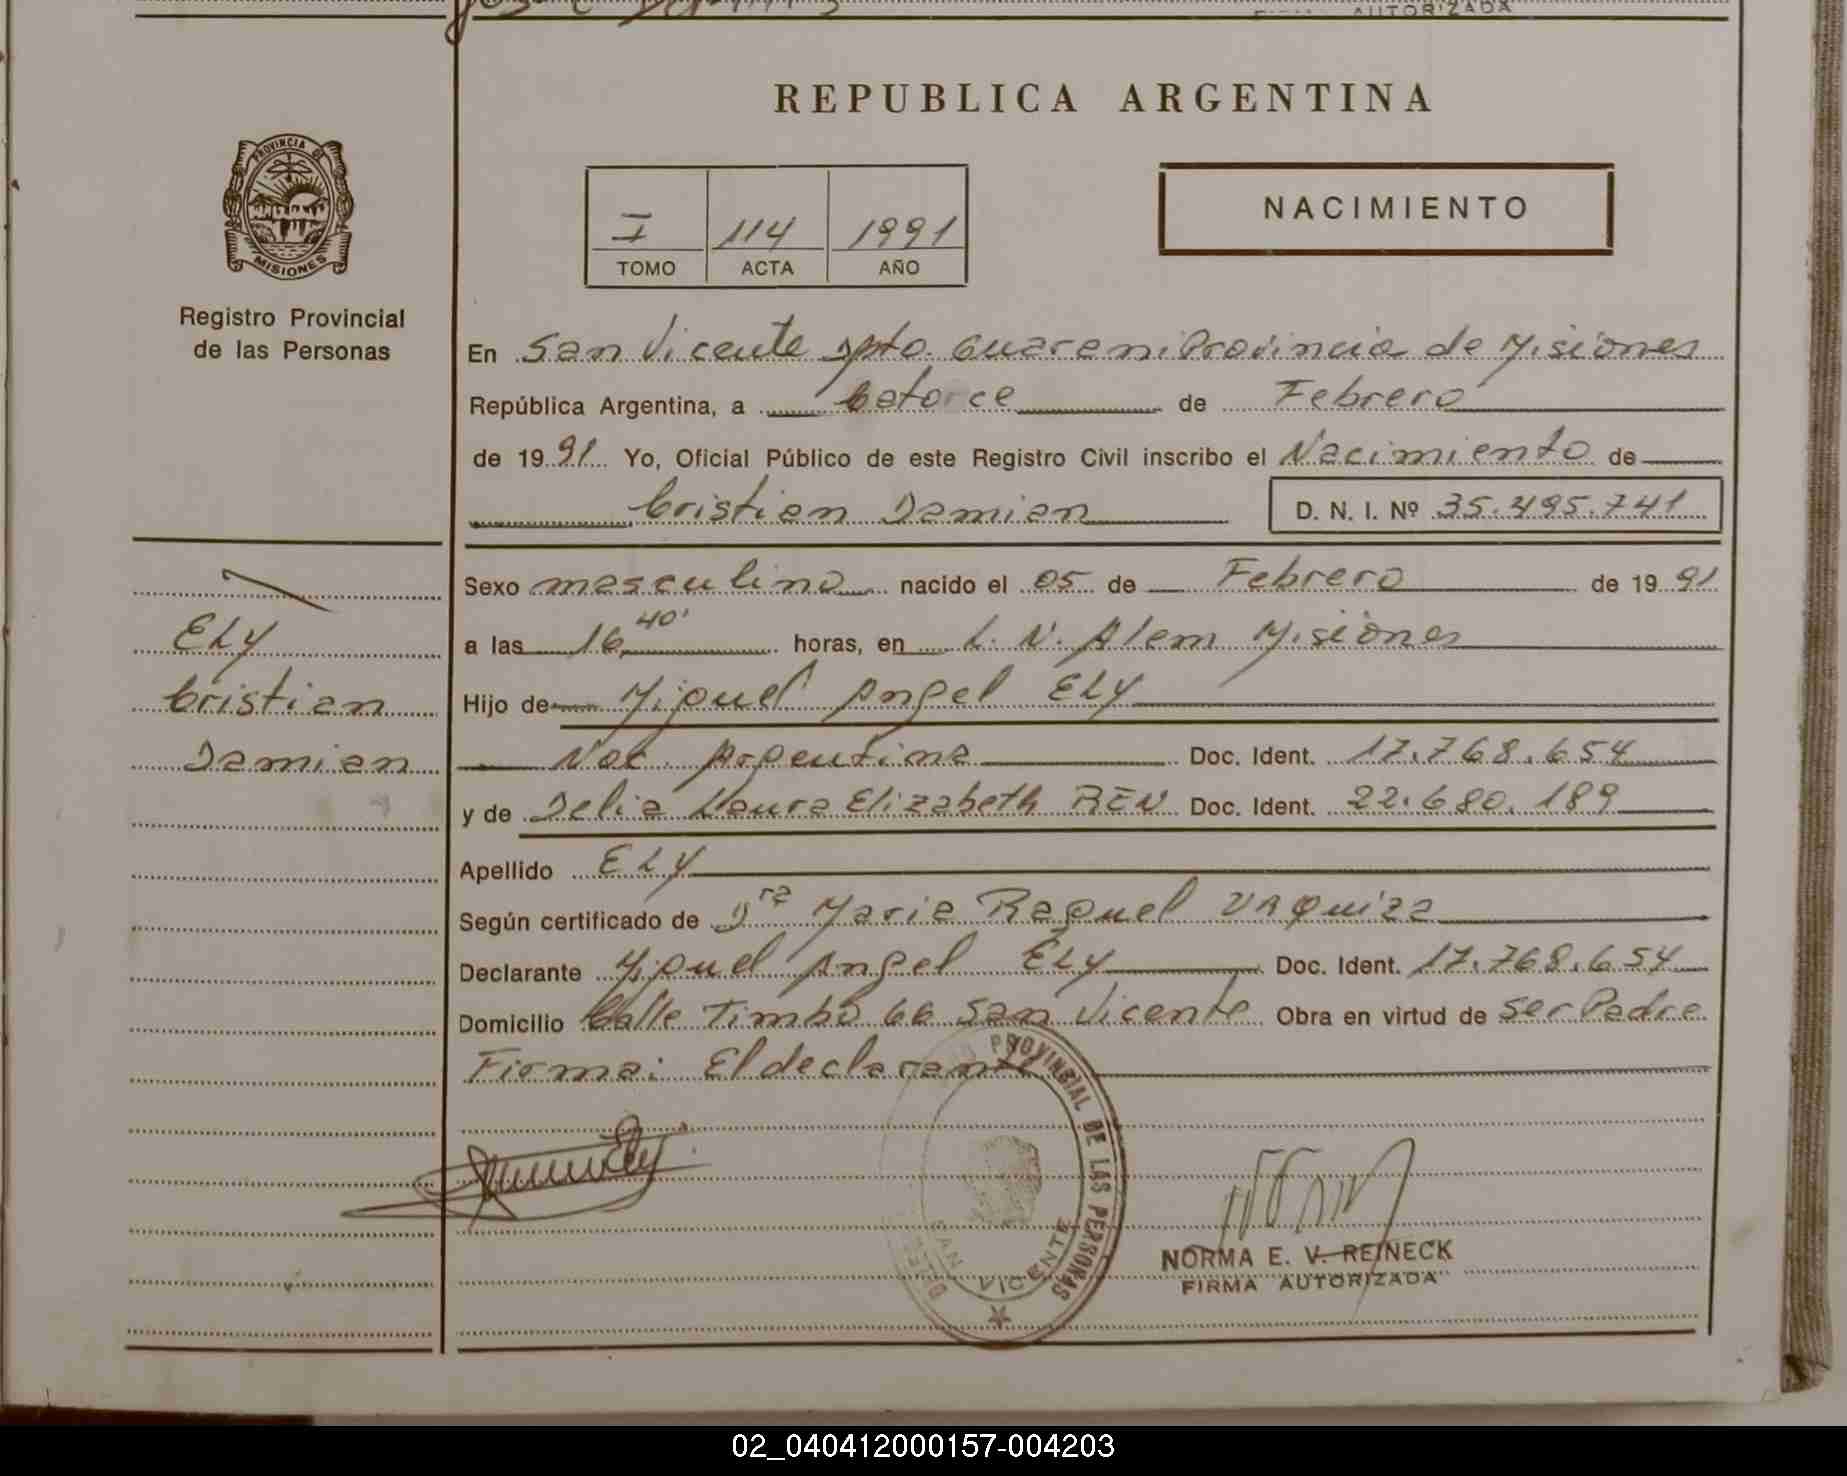 FIRMA AUTORIZADA
REPUBLICA ARGENTINA
PROVINCIA DE
MISIONES
Registro Provincial
de las Personas
I 114 1991
TOMO ACTA AÑO
NACIMIENTO
En San Vicente Dpto. Guarani Provincia de Misiones
República Argentina, a Catorce de Febrero
de 1991 Yo, Oficial Público de este Registro Civil inscribo el Nacimiento de
Cristian Damian D. N. I. Nº 35.495.741
ELY
Cristian
Damian
Sexo masculino nacido el 05 de Febrero de 1991
a las 16,40' horas, en L. N. Alem Misiones
Hijo de Miguel Angel ELY
Nac. Argentina Doc. Ident. 17.768.654
y de Delia Laura Elizabeth REN Doc. Ident. 22.680.189
Apellido ELY
Según certificado de Dra Maria Raquel URquiza
Declarante Miguel Angel ELY Doc. Ident. 17.768.654
Domicilio Calle Timbó 66 San Vicente Obra en virtud de ser Padre
Firma: El declarante
PROVINCIAL DE LAS PERSONAS
SAN VICENTE
NORMA E. V. REINECK
FIRMA AUTORIZADA
02_040412000157-004203